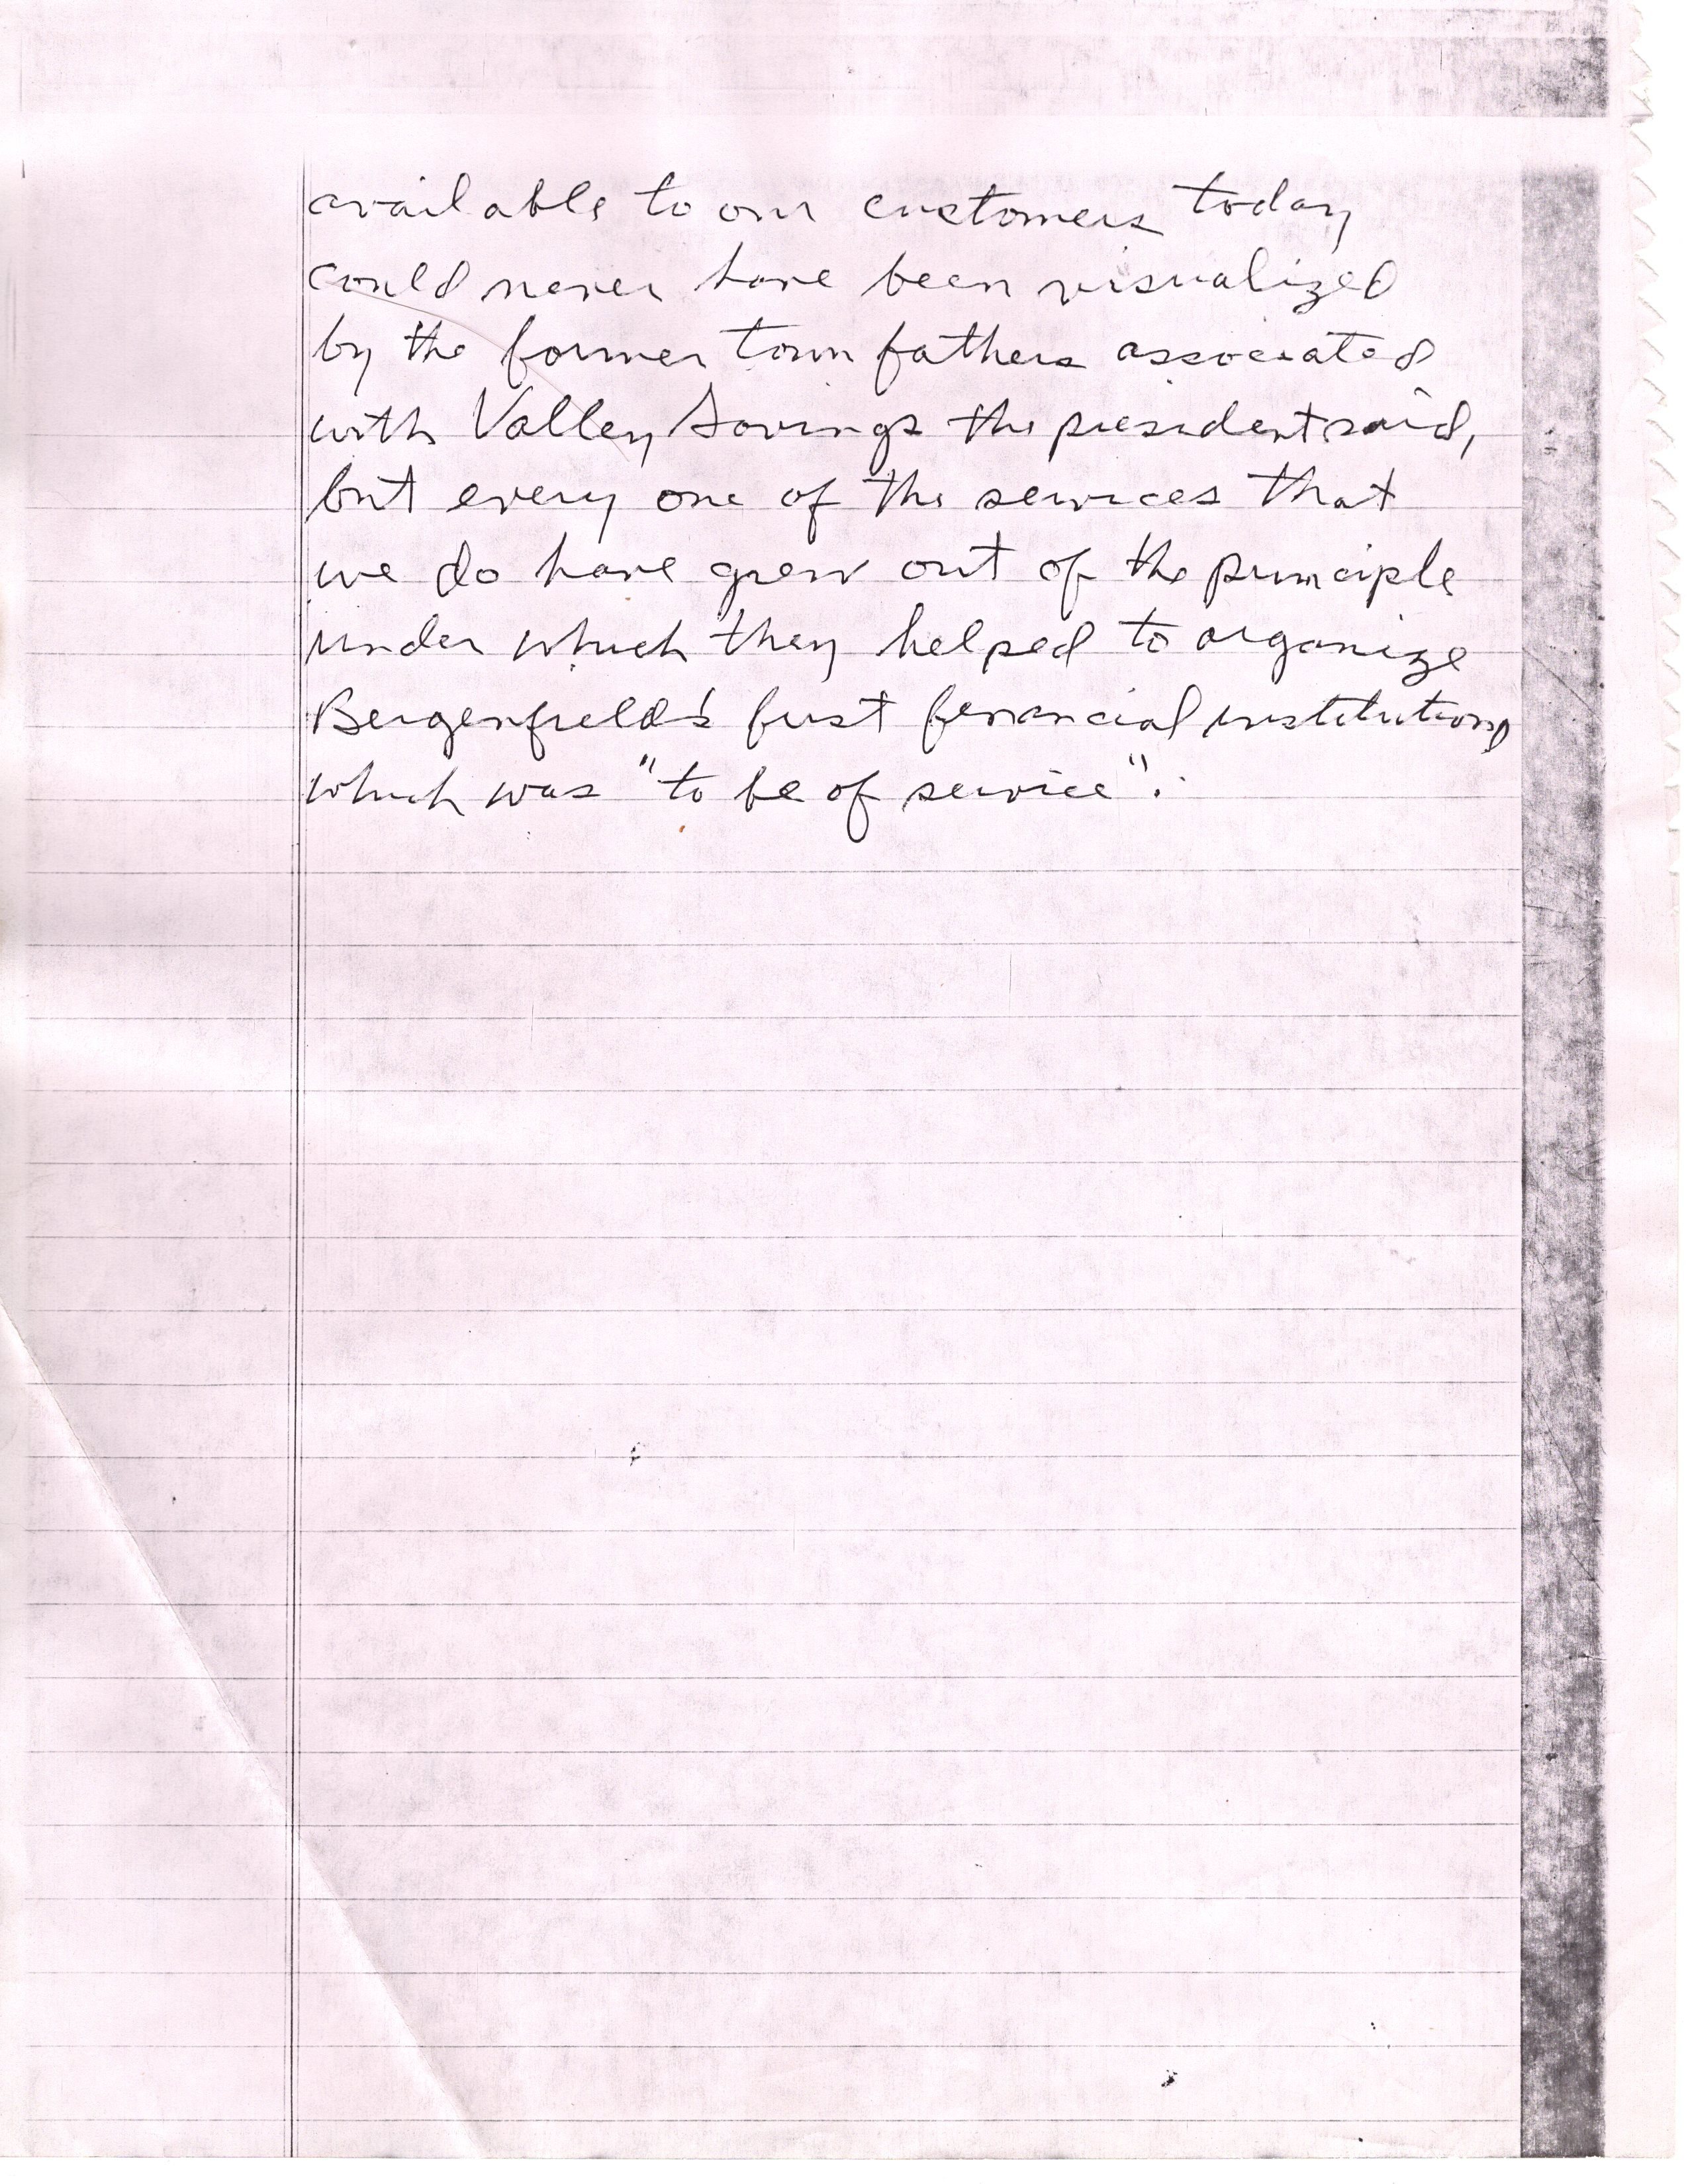 available to our customers today
could never have been visualized
by the former town fathers associated
with Valley Savings the president said,
but every one of the services that
we do have grew out of the principle
under which they helped to organize
Bergenfield's first financial institution,
which was "to be of service".